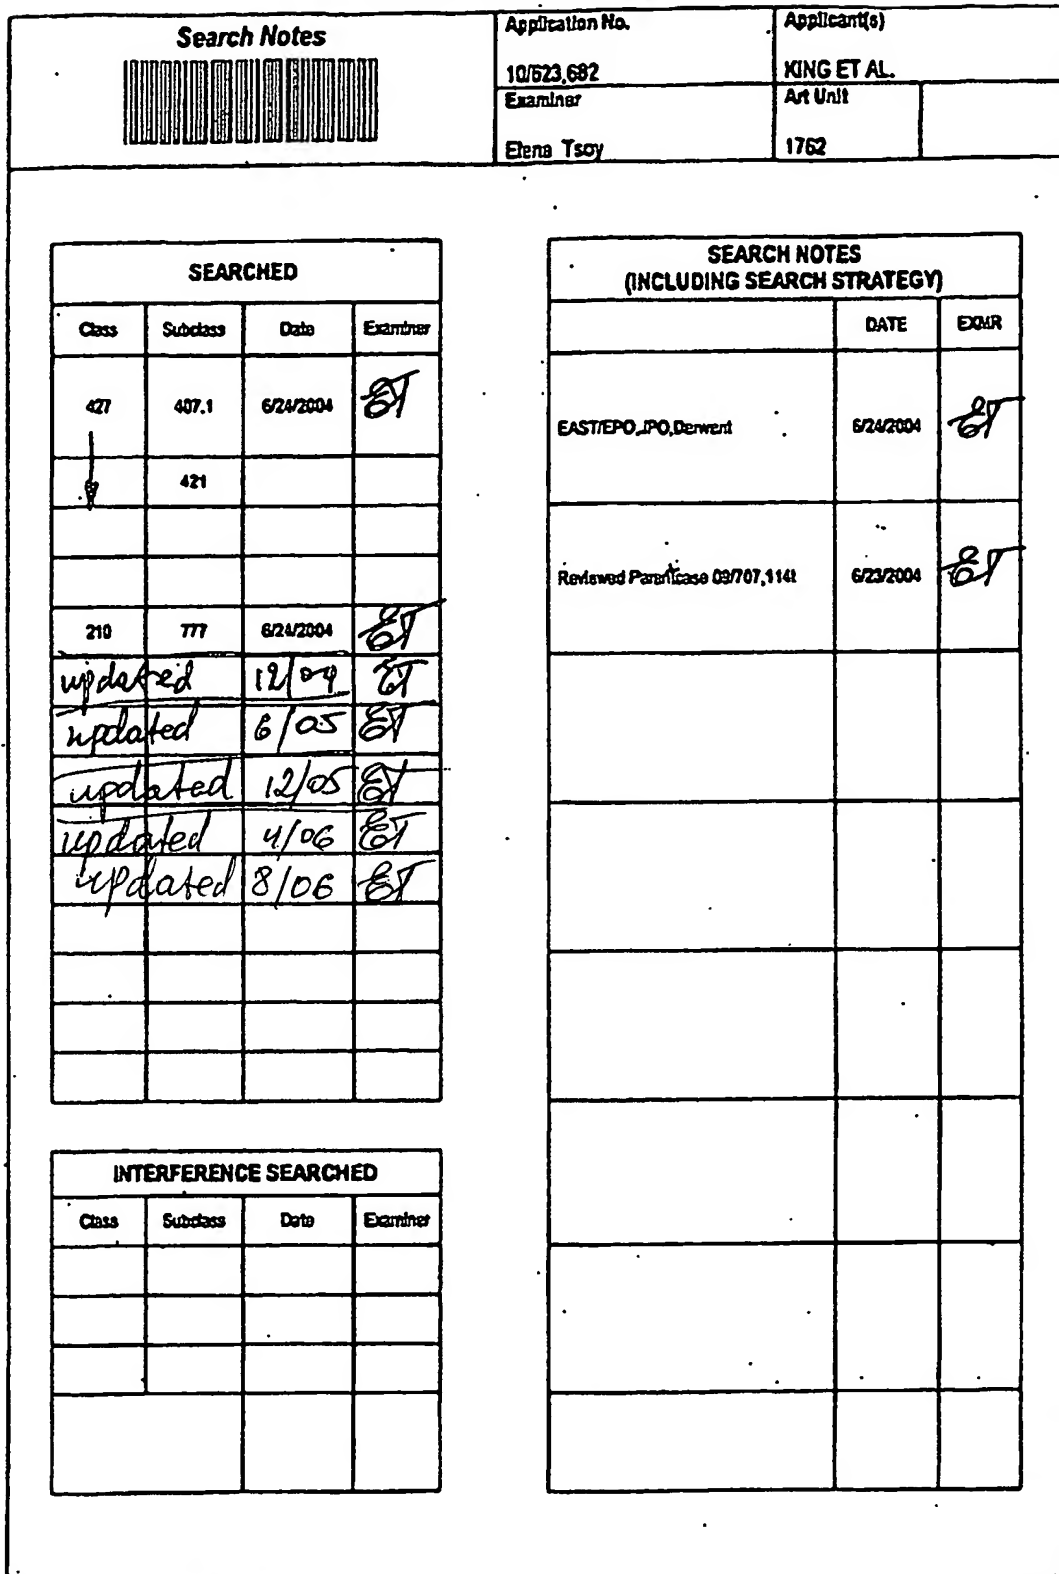 Search Notes
Application No.
Applicant(s)
10/623,682
KING ET AL.
Examiner
Art Unit
Elena Tsoy
1762
SEARCHED
Class Subclass Date Examiner
427 407.1 6/24/2004 ET
421
210 777 6/24/2004 ET
updated 12/04 ET
updated 6/05 ET
updated 12/05 ET
updated 4/06 ET
updated 8/06 ET
INTERFERENCE SEARCHED
Class Subclass Date Examiner
SEARCH NOTES
(INCLUDING SEARCH STRATEGY)
DATE EXMR
EAST/EPO,JPO,Derwent 6/24/2004 ET
Reviewed Parent case 09/707,114 6/23/2004 ET